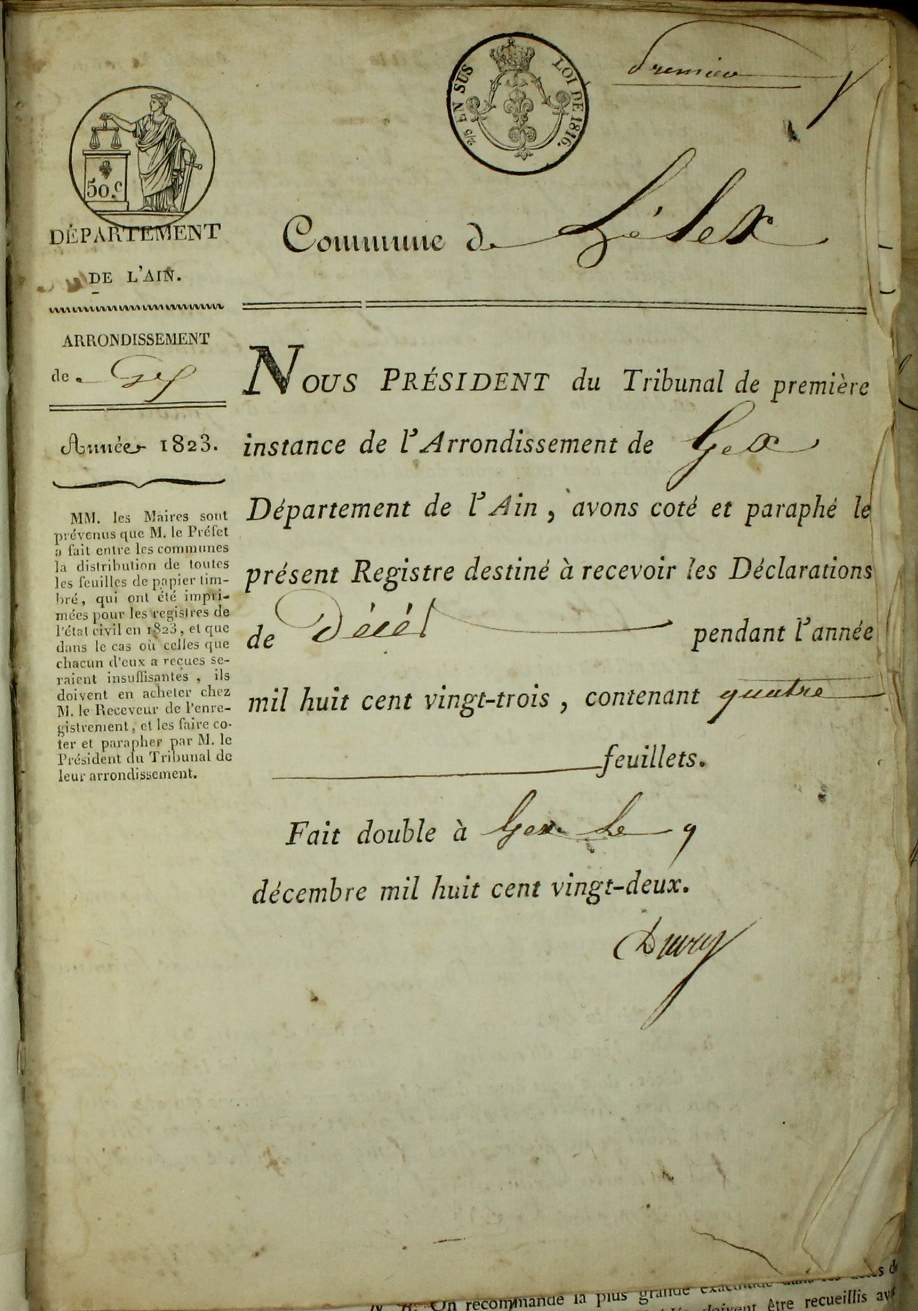 EN SUS LOI DE 1816.
Premier
50.c
DÉPARTEMENT
DE L'AIN.
Commune de Lélex
ARRONDISSEMENT
de Gex
Année 1823.
MM. les Maires sont
prévenus que M. le Préfet
a fait entre les communes
la distribution de toutes
les feuilles de papier tim-
bré, qui ont été impri-
mées pour les registres de
l'état civil en 1823, et que
dans le cas où celles que
chacun d'eux a reçues se-
raient insuffisantes, ils
doivent en acheter chez
M. le Receveur de l'enre-
gistrement, et les faire co-
ter et parapher par M. le
Président du Tribunal de
leur arrondissement.
NOUS PRÉSIDENT du Tribunal de première
instance de l'Arrondissement de Gex
Département de l'Ain, avons coté et paraphé le
présent Registre destiné à recevoir les Déclarations
de Décès pendant l'année
mil huit cent vingt-trois, contenant quatre
feuillets.
Fait double à Gex le 9
décembre mil huit cent vingt-deux.
On recommande la plus grande
être recueillis